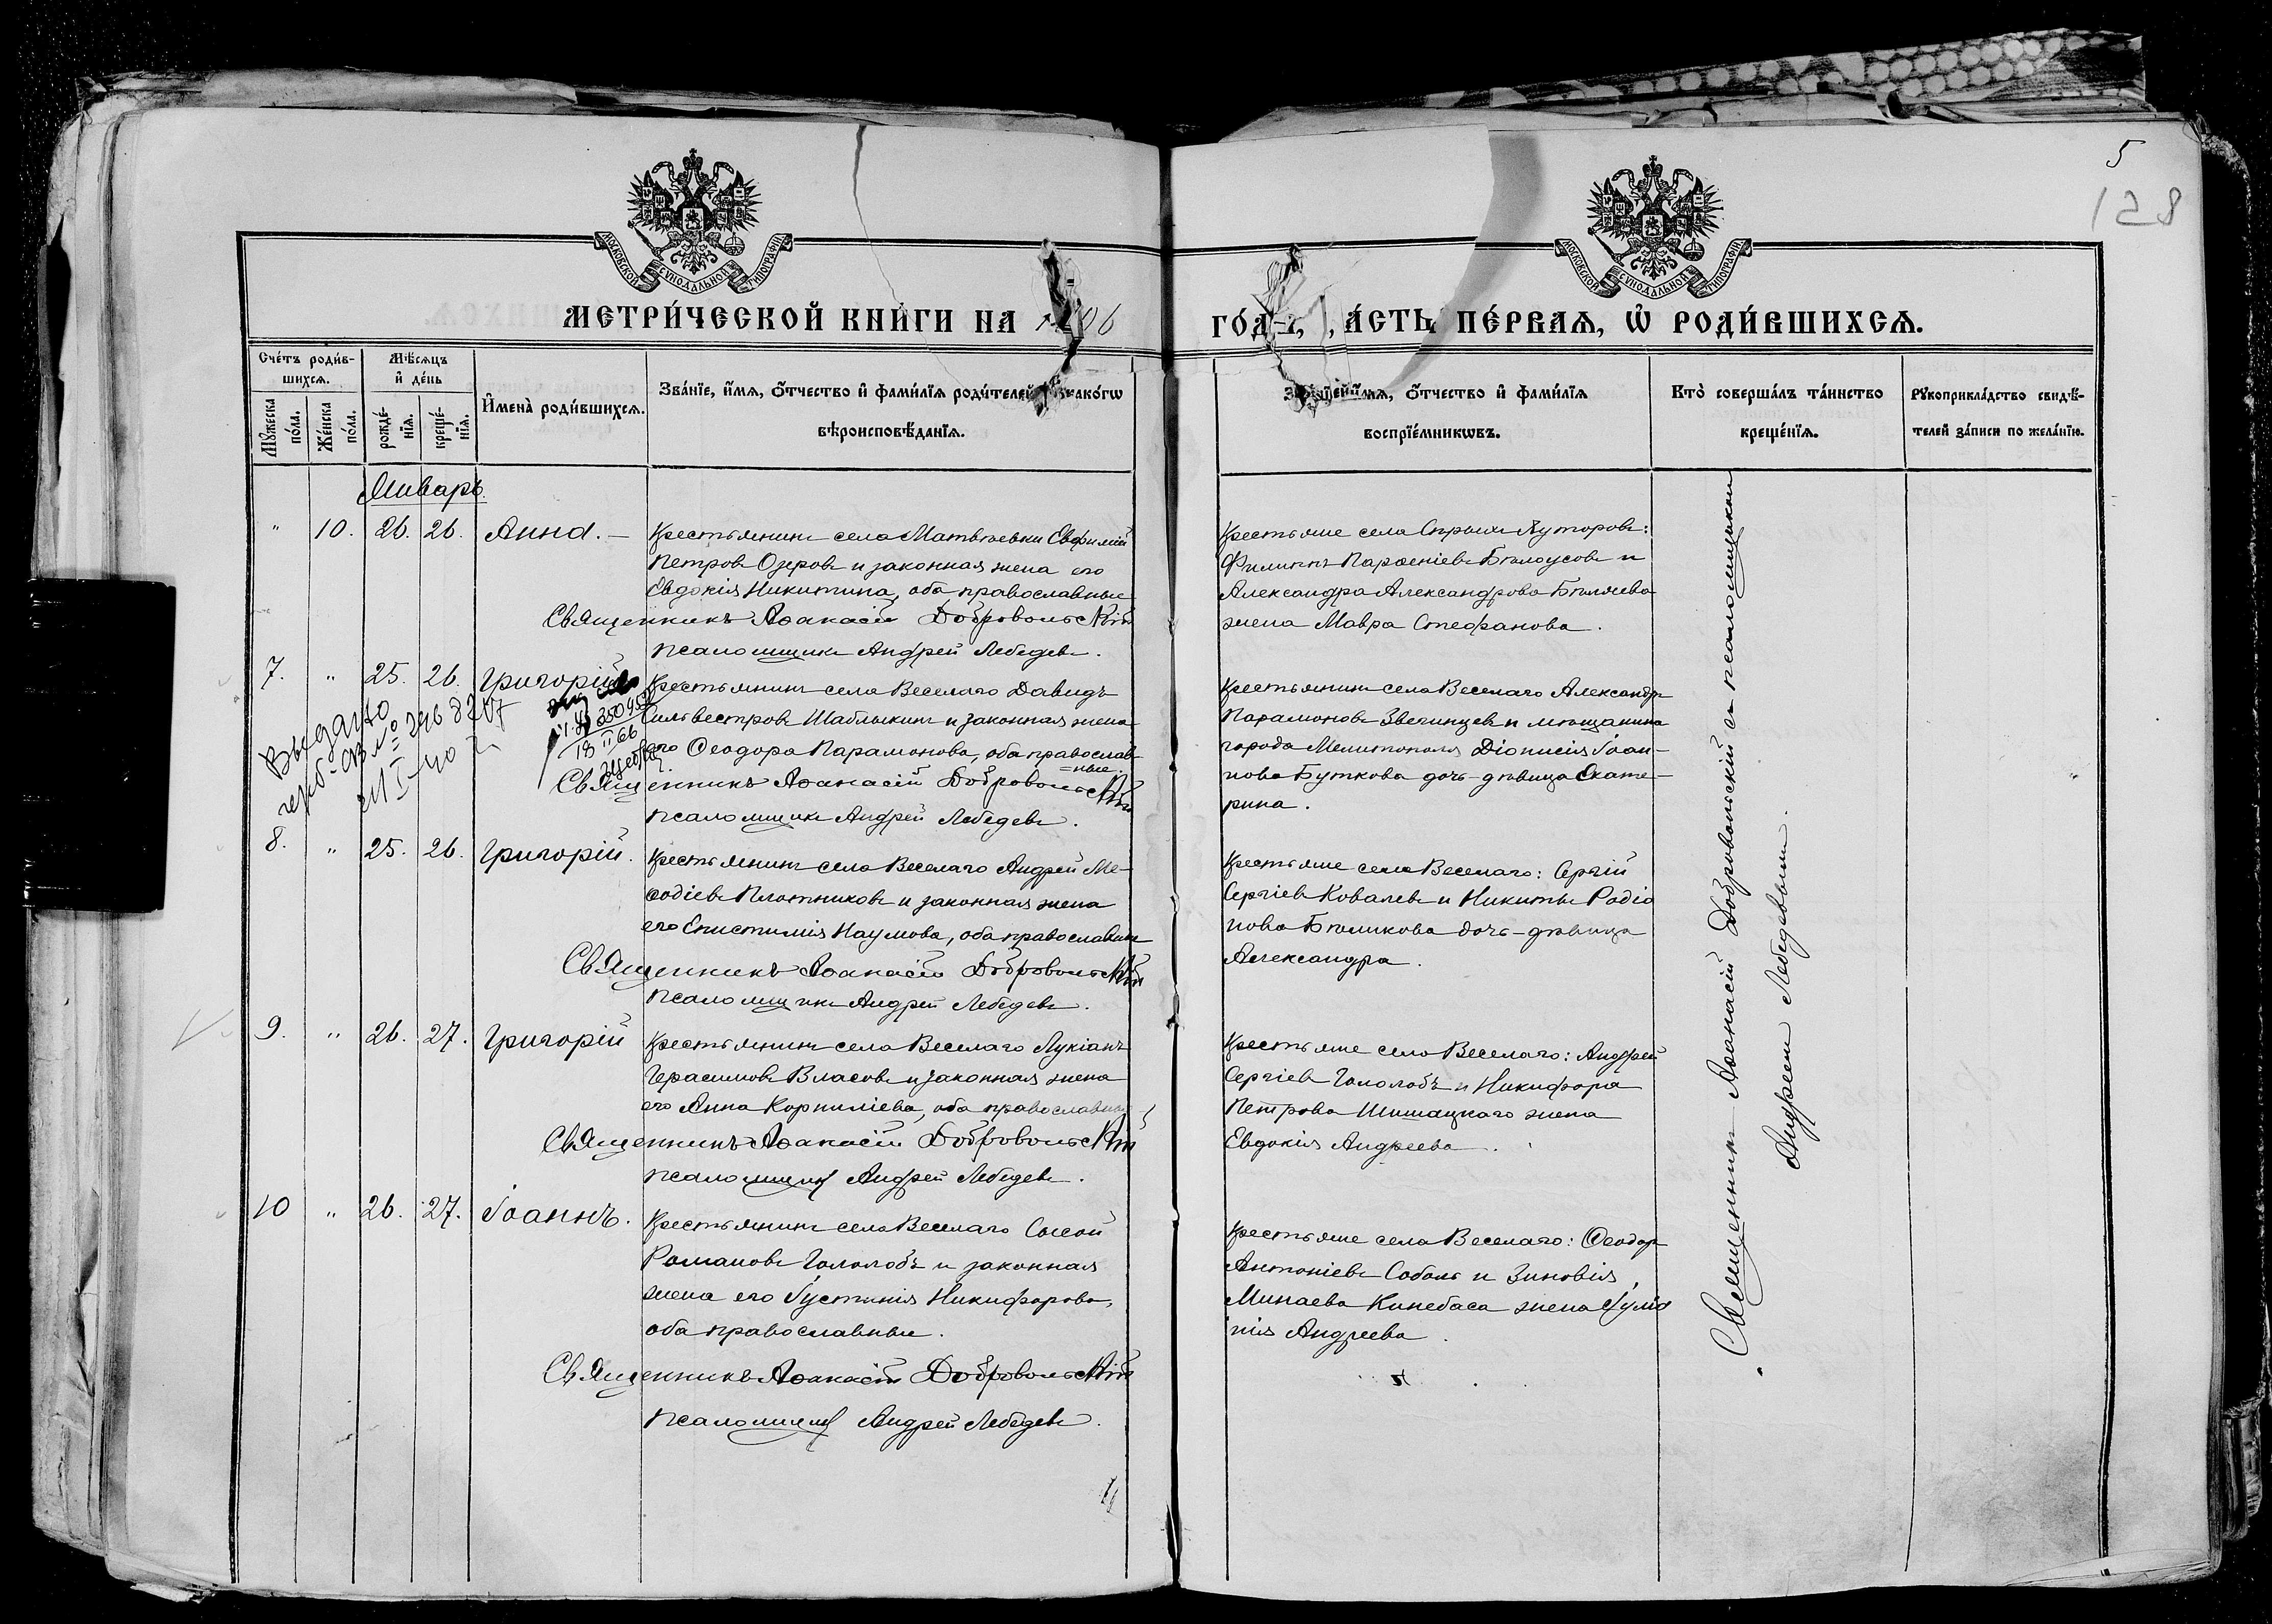 5
128
МОСКОВСКОЙ СѴНОДАЛЬНОЙ ТИПОГРАФІИ
МОСКОВСКОЙ СѴНОДАЛЬНОЙ ТИПОГРАФІИ
МЕТРИ́ЧЕСКОЙ КНИ́ГИ НА
ПЕ́РВАѦ, Ѡ҆ РОДИ́ВШИХСѦ.
Сче́тъ роди́в-
шихсѧ.
Мѣ́сѧцъ
и҆ де́нь
Мꙋ́жеска по́ла.
Же́нска по́ла.
рожде́-
нїѧ.
креще́-
нїѧ.
И҆мена̀ роди́вшихсѧ.
Зва́нїе, и҆́мѧ, ѻ҆́тчество и҆ фами́лїѧ роди́телей
вѣроисповѣ́данїѧ.
ѻ҆́тчество и҆ фами́лїѧ
воспрїе́мникѡвъ.
Кто̀ соверша́лъ та́инство
креще́нїѧ.
Рꙋкоприкла́дство свидѣ́-
телей за́писи по жела́нїю.
Январь.
" 10. 26. 26. Анна. –
Крестьянинъ села Матвѣевки Евфимій
Петровъ Озеровъ и законная жена его
Евдокія Никитина, оба православные
Священникъ Аѳанасій Добровольскій
Псаломщикъ Андрей Лебедевъ.
Филиппъ Парѳеніевъ Бѣлоусовъ и
Александра Александрова Бѣляева
жена Мавра Стефанова.
7. " 25. 26. Григорій
Крестьянинъ села Веселаго Давидъ
Сильвестровъ Шаблыкинъ и законная жена
его Ѳеодора Парамонова, оба православ-
=ные.
Священникъ Аѳанасій Добровольскій
Псаломщикъ Андрей Лебедевъ.
Выдано
18 II 66
Крестьянинъ села Веселаго Александръ
Парамоновъ Звегинцевъ и мѣщанина
города Мелитополя Діонисія Іоан-
нова Буткова дочь-дѣвица Екате-
рина.
8. " 25. 26. Григорій.
Крестьянинъ села Веселаго Андрей Ме-
ѳодіевъ Плотниковъ и законная жена
его Епистимія Наумова, оба православные
Священникъ Аѳанасій Добровольскій
Псаломщикъ Андрей Лебедевъ.
Крестьяне села Веселаго: Сергій
Сергіевъ Ковалевъ и Никиты Родіо
нова Бѣликова дочь-дѣвица
Александра.
9. " 26. 27. Григорій
Крестьянинъ села Веселаго Лукіанъ
Герасимовъ Власовъ и законная жена
его Анна Корниліева, оба православные
Священникъ Аѳанасій Добровольскій
Псаломщикъ Андрей Лебедевъ.
Крестьяне села Веселаго: Андрей
Сергіевъ Гололобъ и Никифора
Петрова Шишацкаго жена
Евдокія Андреева.
10 " 26. 27. Іоаннъ.
Крестьянинъ села Веселаго Сысой
Романовъ Гололобъ и законная
жена его Іустинія Никифорова,
оба православные.
Священникъ Аѳанасій Добровольскій
Псаломщикъ Андрей Лебедевъ.
Крестьяне села Веселаго: Ѳеодоръ
Антоніевъ Соболь и Зиновія
Минаева Кинебаса жена Іулiа
нія Андреева.
Священникъ Аѳанасій Добровольскій съ псаломщикомъ
Андреем Лебедевым.